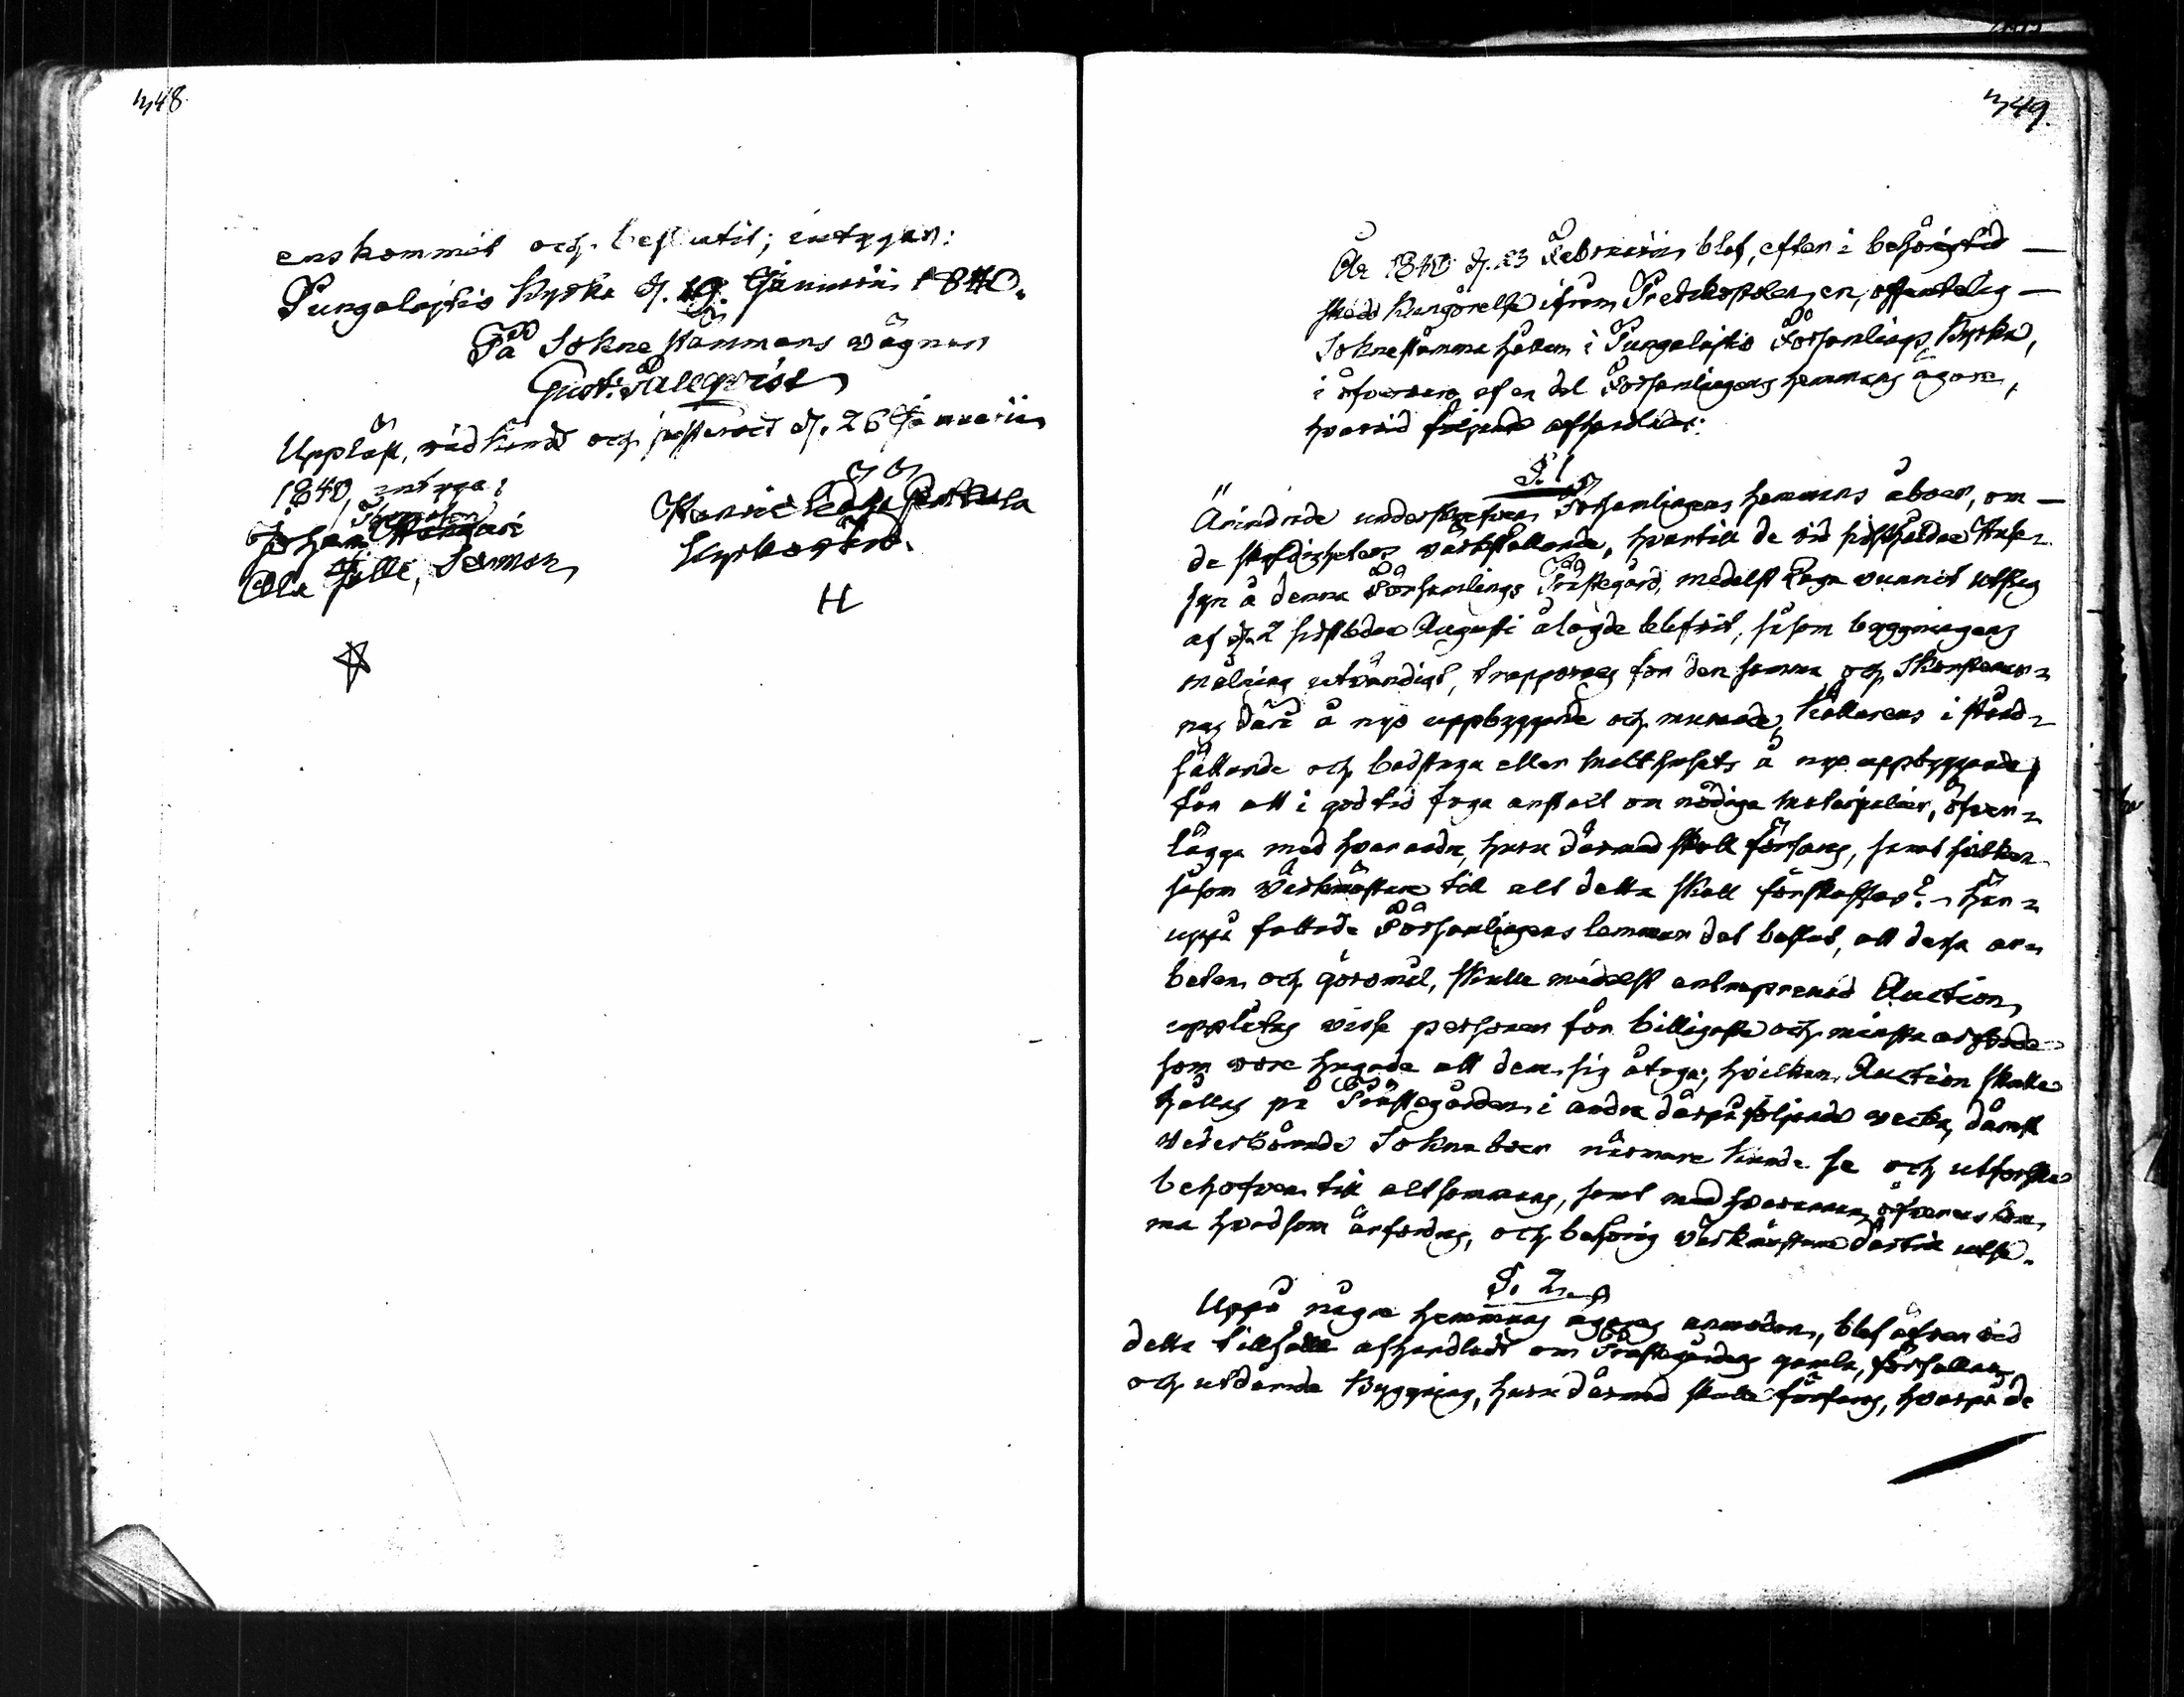 348.
enskommit och beslutit; intygar:
Pungalaitio Kyrka d. 19. Januarii 1840.
På Sokne stämmans vägnar
Gust: Fallqvist
Uppläst, vidkändt och justerat d. 26 Januarii
1840, intyga:
Johan
Ola Jilli, Sexman
Kyrkovärd.
H
349.
År 1840 d. 23 Februarii blef, efter i behörig tid
skedd kungörelse ifrån Predikstolen, en offentelig
Sokne stämma hållen i Pungalaitio Församlings Kyrka,
i öfvervaro af en del Församlingens hemmans ägare,
hvarvid följande afhandlades:
§. 1
Ärindrade underskrefven Församlingens hemmans åboer, om
de skyldigheters värkställande, hvartill de vid sistl. Husesyn
syn å denna Församlings Prästegård, medelst Laga vunnit utslag
af d. 2 sistledne Augusti ålagde blifvit, såsom byggningens
målning utvändigt, trappornas för den samma och Skorstenar-
nas därå å nyo uppbyggande och murande, källarens i stånd-
sättande och badstuga eller malthusets å nyo uppbyggande;
för att i god tid foga anstalt om nödiga materialier, öfver-
lägga med hvarandra, huru därmed skall förfaras, samt hvilken
såsom Värkmästare till alt detta skall förskaffas? – Här-
uppå fattade Församlingens lemmar det beslut, att dessa ar-
beten och göromål, skulle medelst entreprenad Auction,
upplåtas visse personer för billigaste och minsta anbud
som vore hugade att dem sig åtaga; hvilken Auction skulle
hållas på Prästegården i andra därpåföljande vecka, därest
Vederbörande Sokneboer närmare kunde se och utforska
behofven till altsammans, samt med hvarannan öfverenskom-
ma hvad som ärfordras, och behörig Värkmästare därtill utse.
§. 2.
Uppå någre hemmans ägares anmodan, blef äfven vid
detta tillfälle afhandladt om Prästegårdens gamla, förfallna,
och utdömda Byggning, huru därmed skulle förfaras, hvarpå de